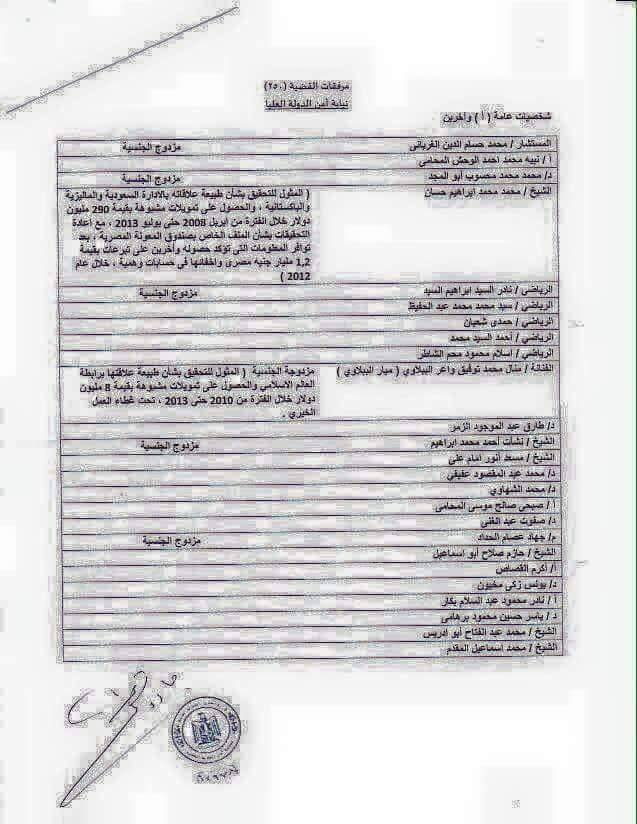 مرفقات القضية (٢٥٠)
نيابة أمن الدولة العليا
شخصيات عامة ( أ ) وآخرين
المستشار / محمد حسام الدين الغريانى مزدوج الجنسية
أ / نبيه محمد احمد الوحش المحامي
د/ محمد محمد محسوب أبو المجد مزدوج الجنسية
الشيخ / محمد محمد ابراهيم حسان ( المثول للتحقيق بشأن طبيعة علاقاته بالادارة السعودية والماليزية
والباكستانية ، والحصول على تمويلات مشبوهة بقيمة 290 مليون
دولار خلال الفترة من ابريل 2008 حتى يوليو 2013 ، مع اعادة
التحقيقات بشأن الملف الخاص بصندوق المعونة المصرية ، بعد
توافر المعلومات التى تؤكد حصوله وآخرين على تبرعات بقيمة
1,2 مليار جنيه مصرى واخفائها في حسابات وهمية ، خلال عام
2012 )
الرياضي / نادر السيد ابراهيم السيد مزدوج الجنسية
الرياضي / سيد محمد محمد عبد الحفيظ
الرياضي / حمدى شعبان
الرياضي / أحمد السيد محمد
الرياضي / اسلام محمود محم الشاطر
الفنانة / منال محمد توفيق واعر الببلاوي ( ميار الببلاوي ) مزدوجة الجنسية ( المثول للتحقيق بشأن طبيعة علاقتها برابطة
العالم الاسلامي والحصول على تمويلات مشبوهة بقيمة 8 مليون
دولار خلال الفترة من 2010 حتى 2013 ، تحت غطاء العمل
الخيري .
د/ طارق عبد الموجود الزمر
الشيخ / نشأت أحمد محمد ابراهيم مزدوج الجنسية
الشيخ / مسعد أنور امام على
د/ محمد عبد المقصود عفيفي
د/ محمد الشهاوي
أ / صبحى صالح موسى المحامى
د/ صفوت عبد الغنى
م/ جهاد عصام الحداد مزدوج الجنسية
الشيخ / حازم صلاح أبو اسماعيل
أ/ أكرم القصاص
د/ يونس زكى مخيون
أ / نادر محمود عبد السلام بكار
د / ياسر حسين محمود برهامى
الشيخ / محمد عبد الفتاح أبو ادريس
الشيخ / محمد اسماعيل المقدم